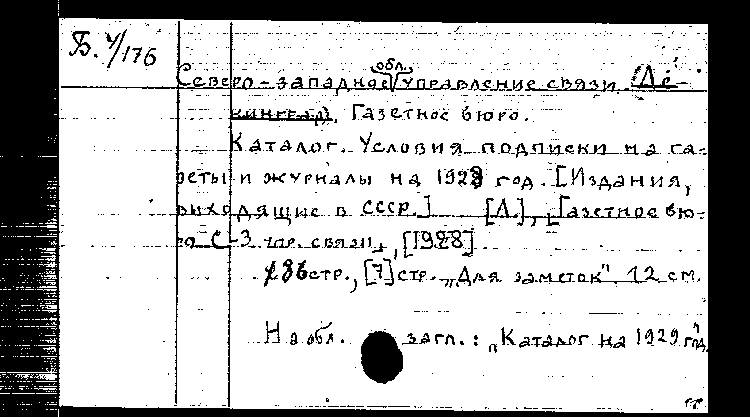 Б. 4/176
Северо-западное обл. управление связи. (Ле-
нинград). Газетное бюро.
Каталог. Условия подписки на га-
зеты и журналы на 1928 год. [Издания,
выходящие в СССР.] [Л.], [Газетное бю-
ро С-З упр. связи], [1928]
186 стр., [7] стр. „Для заметок" 12 см.
На обл. загл.: „Каталог на 1929 год"